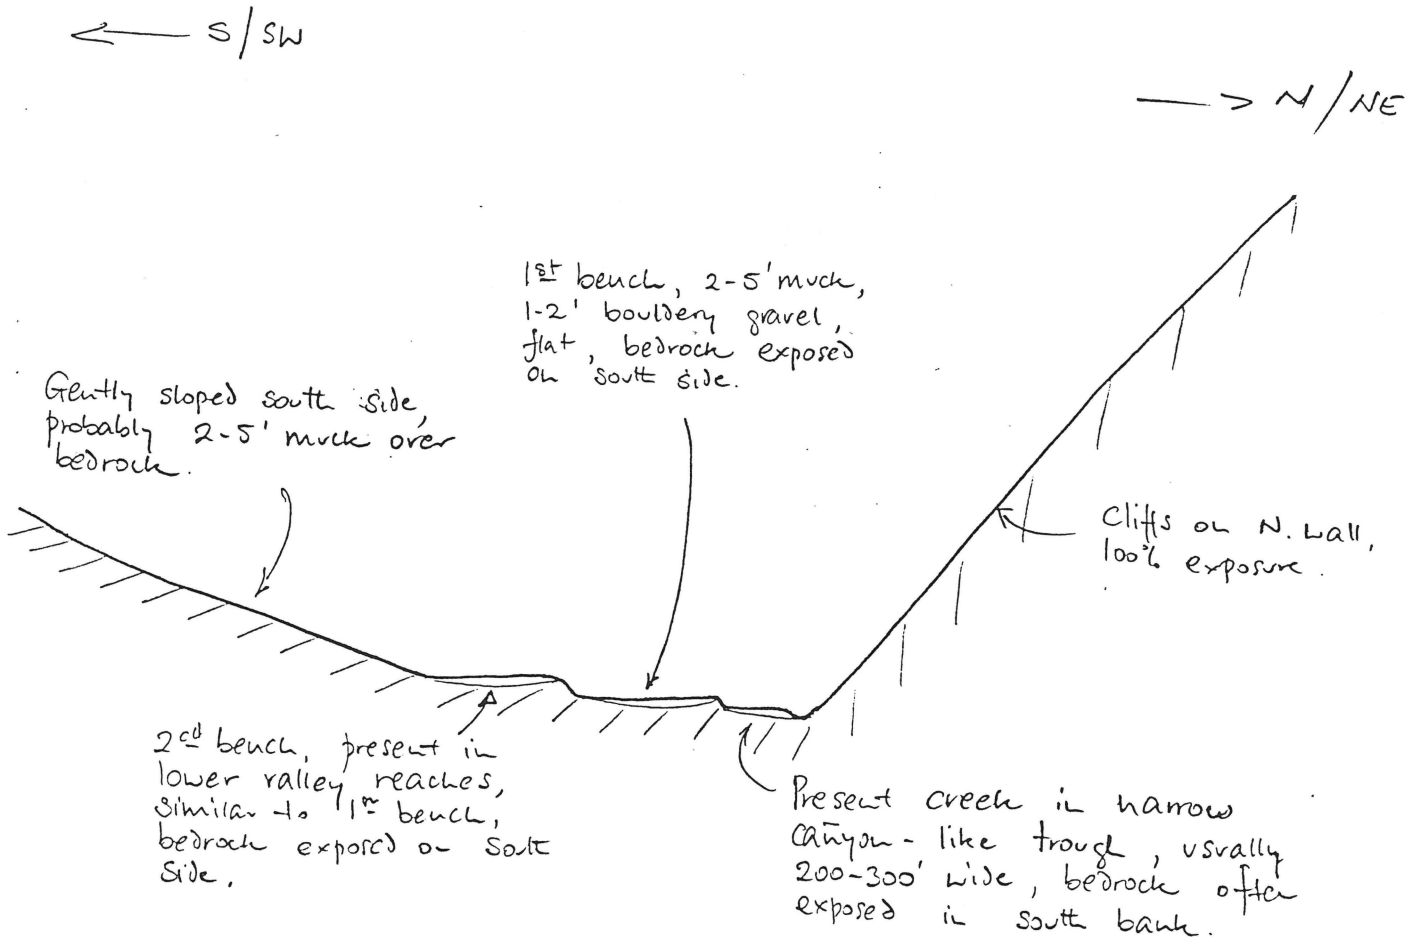 S/SW
N/NE
1st bench, 2-5' muck,
1-2' bouldery gravel,
flat, bedrock exposed
on south side.
Gently sloped south side,
probably 2-5' muck over
bedrock.
Cliffs on N. wall,
100% exposure.
2cd bench, present in
lower valley reaches,
similar to 1st bench,
bedrock exposed on south
side.
Present creek in narrow
canyon-like trough, usually
200-300' wide, bedrock often
exposed in south bank.